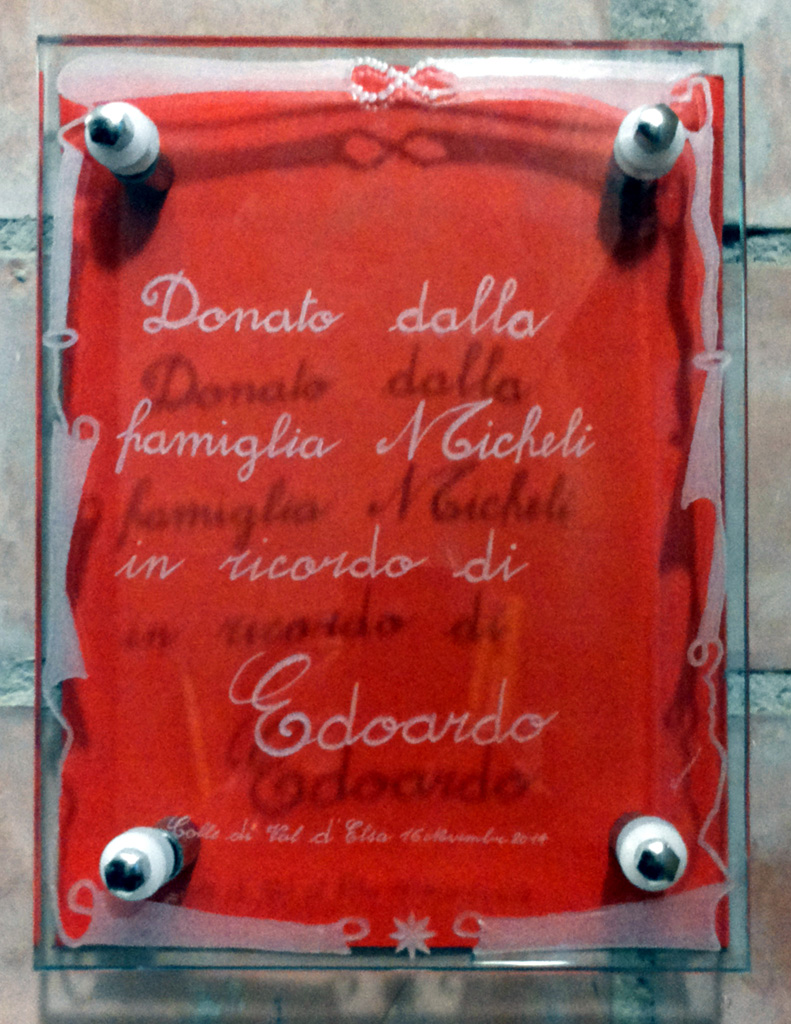 Donato dalla
famiglia Micheli
in ricordo di
Edoardo
Colle di Val d'Elsa 16 Novembre 2014